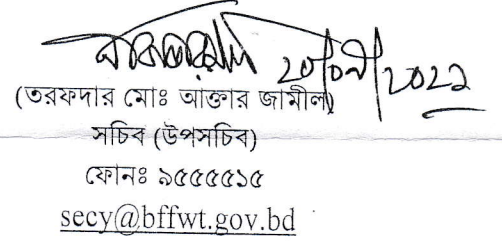 ২৮/০৯/২০২২
(তরফদার মোঃ আক্তার জামীল)
সচিব (উপসচিব)
ফোনঃ ৯৫৫৫৫১৫
secy@bffwt.gov.bd